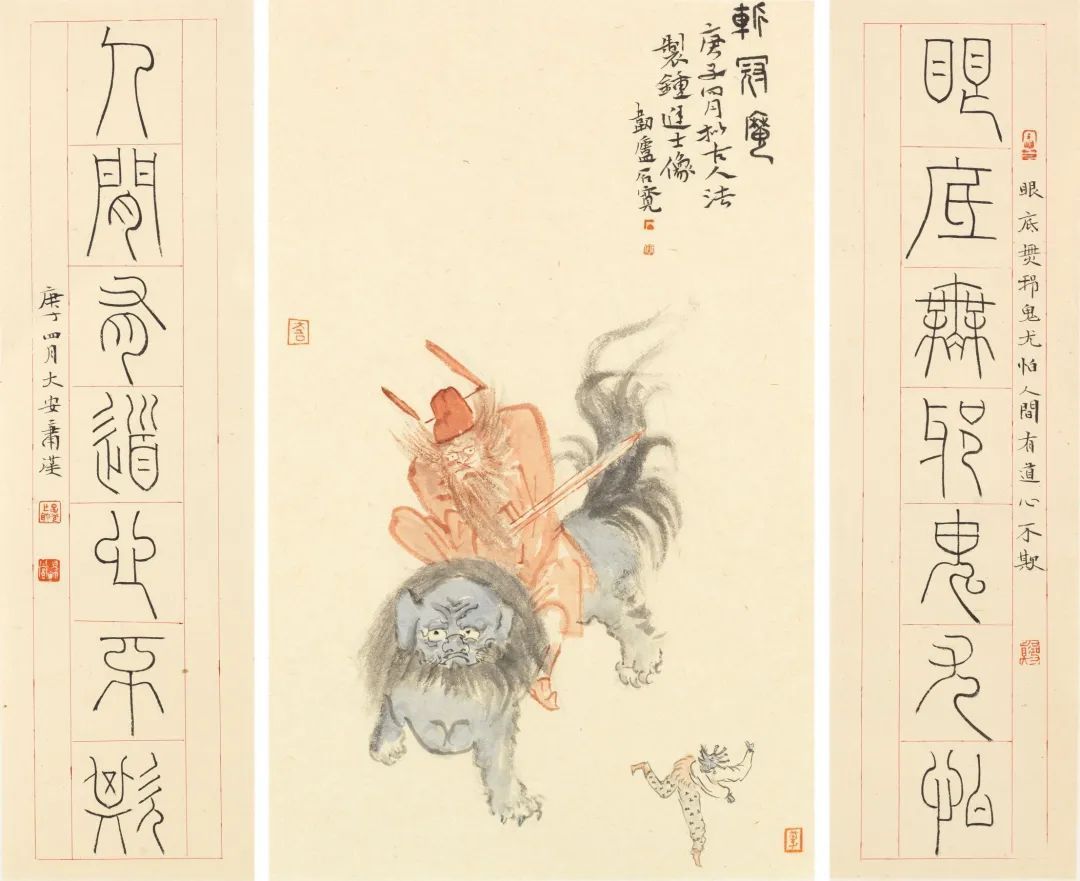 眼底無邪鬼尤怕人間有道心不欺
眼底無邪鬼尤怕
斬冠魔
庚子四月拟古人法
製鍾進士像
韌盧石寬
人間有道心不欺
庚子四月大安蕭漢